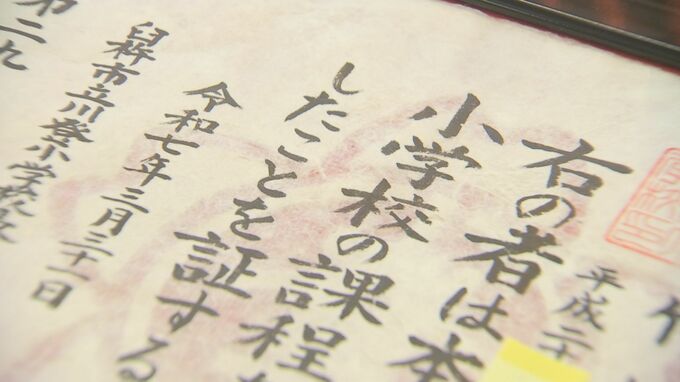 平成二
右の者は本
小学校の課程
したことを証する
令和七年三月二十一日
臼杵市立川登小学校
第二九